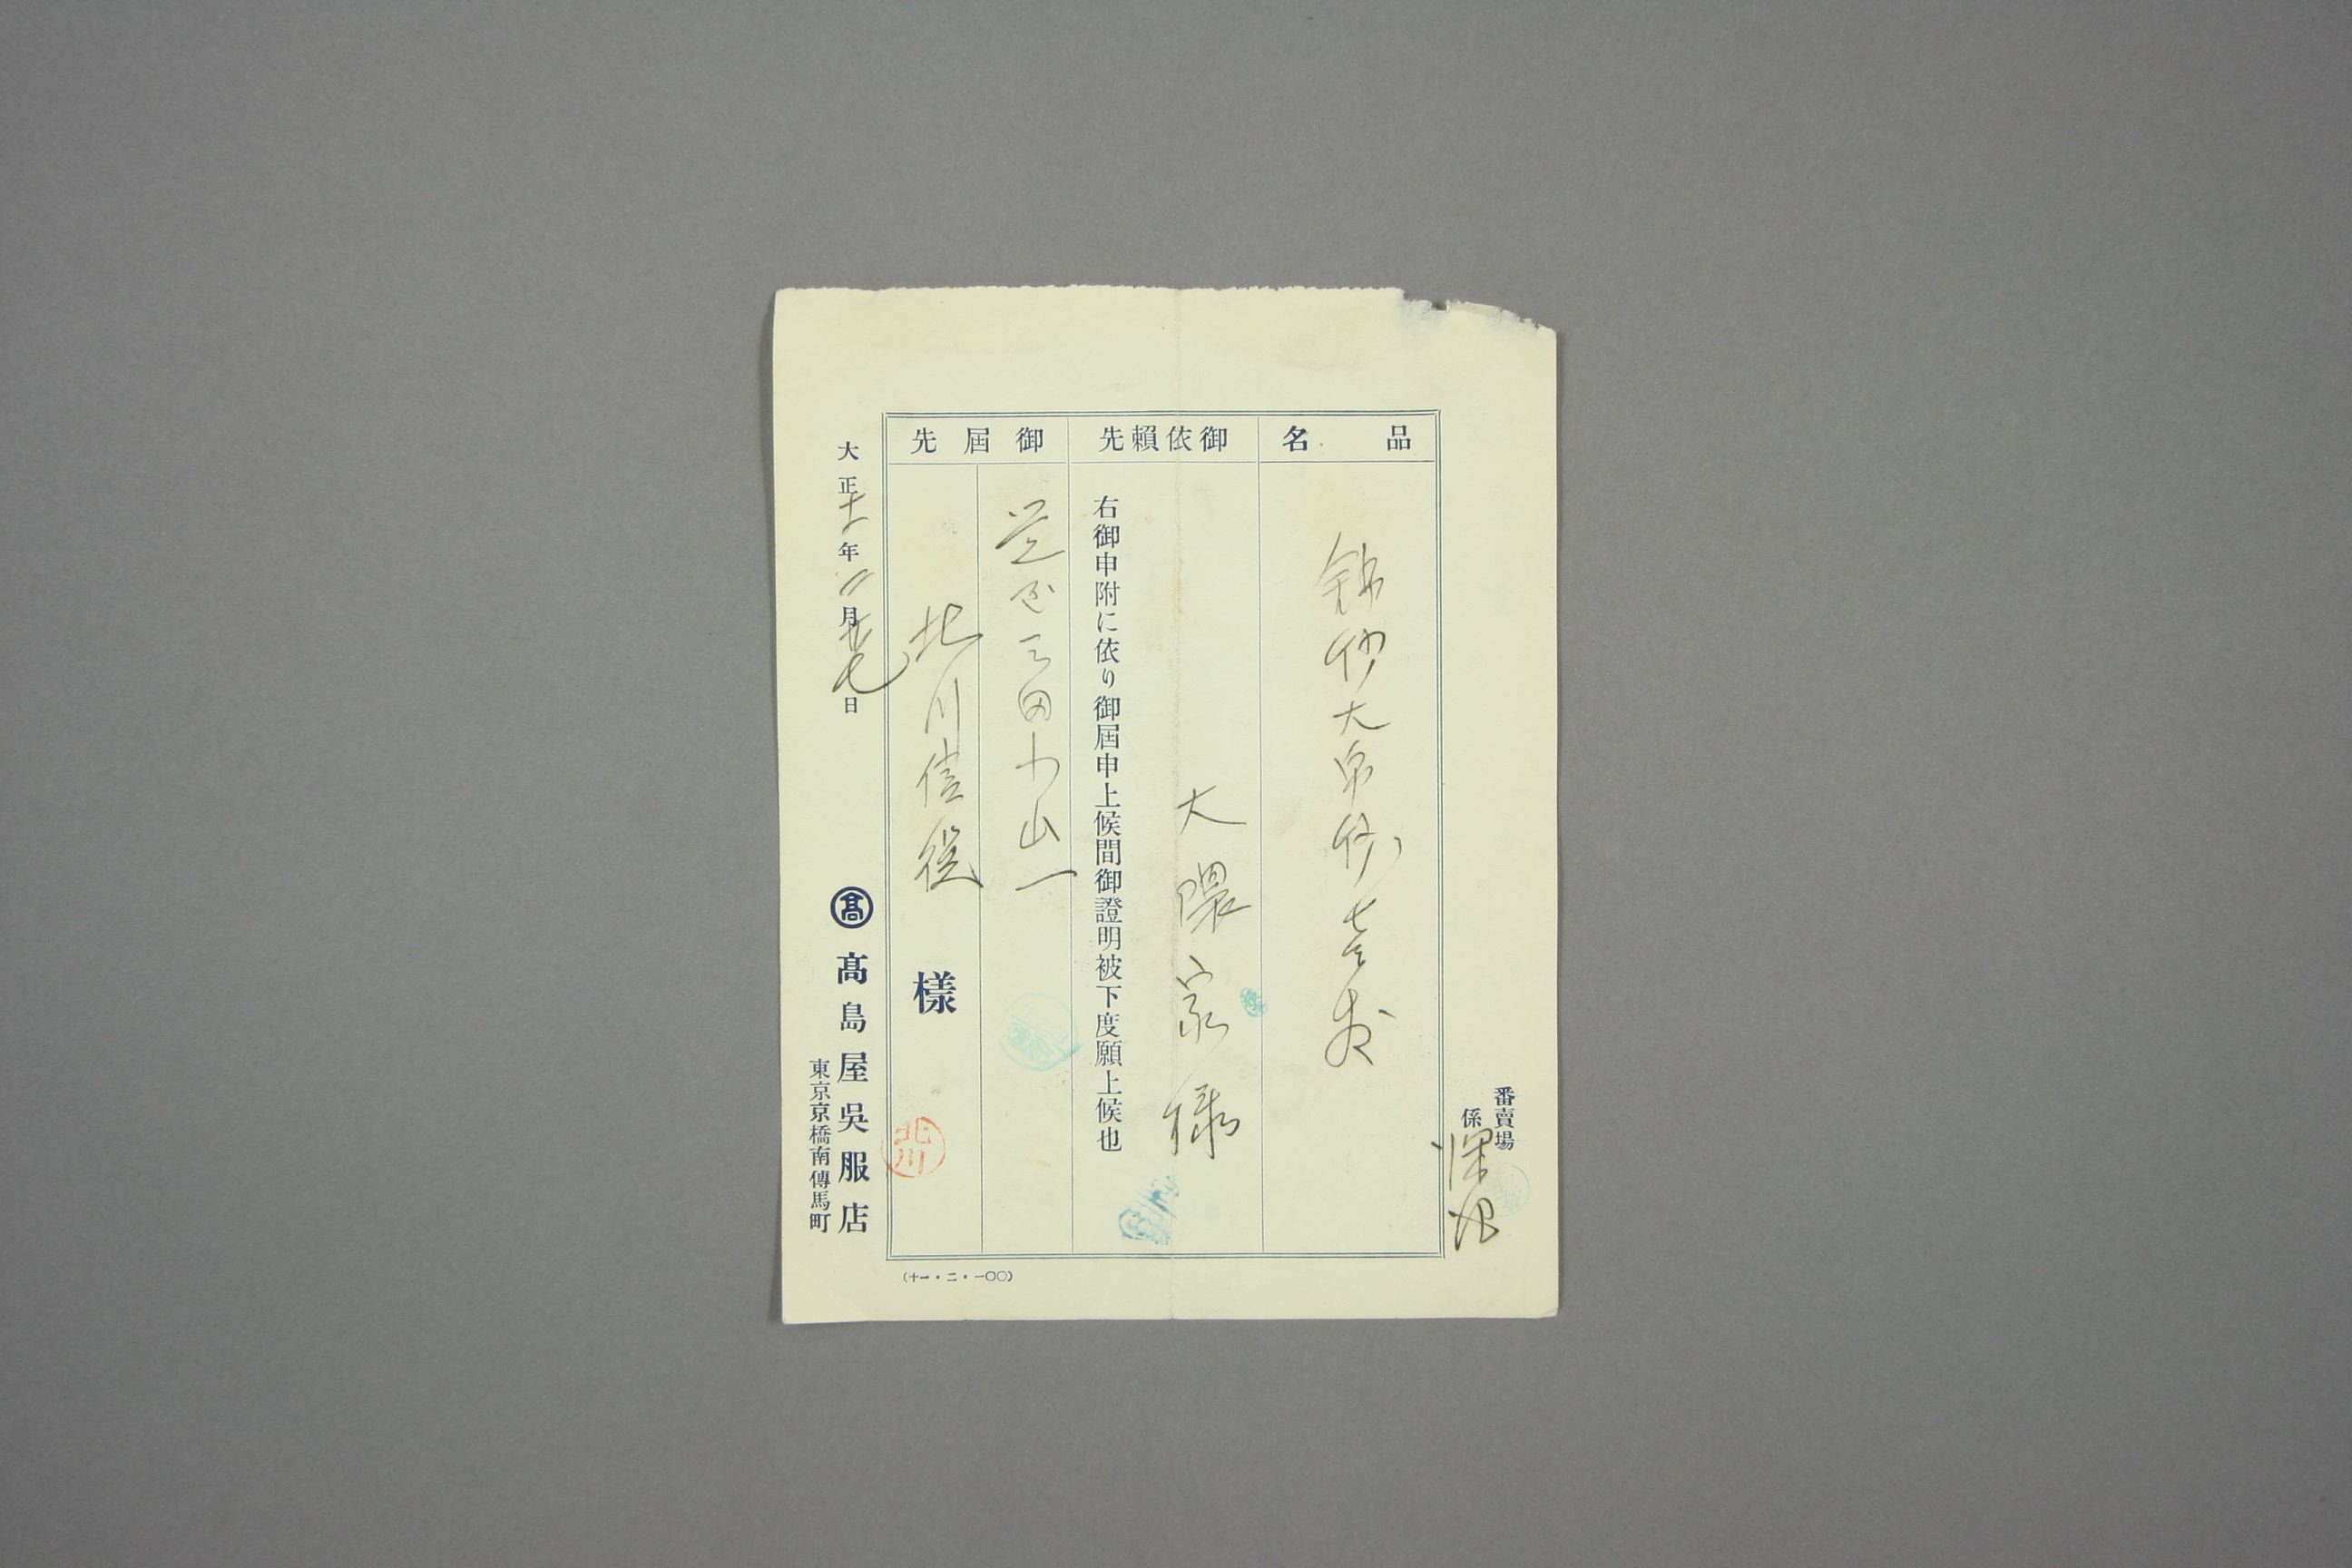 番賣場
係
品名
錦紗大帛紗 壱枚
御依賴先
大隈家様
右御申附に依り御屆申上候間御證明被下度願上候也
御屆先
芝区三田小山一
北川信從様
北川
大正十一年二月廿七日
髙 髙島屋吳服店
東京京橋南傳馬町
(十一・二・一〇〇)